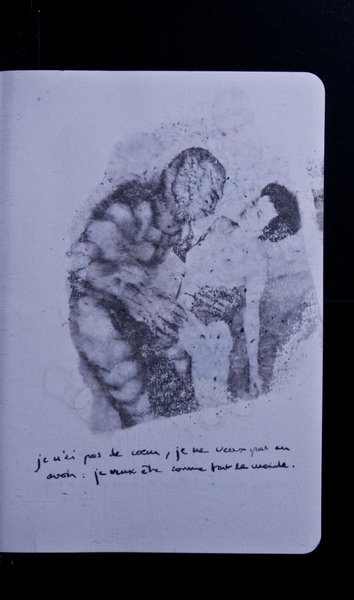 je n'ai pas de cœur, je ne veux pas en
avoir : je veux être comme tout le monde.